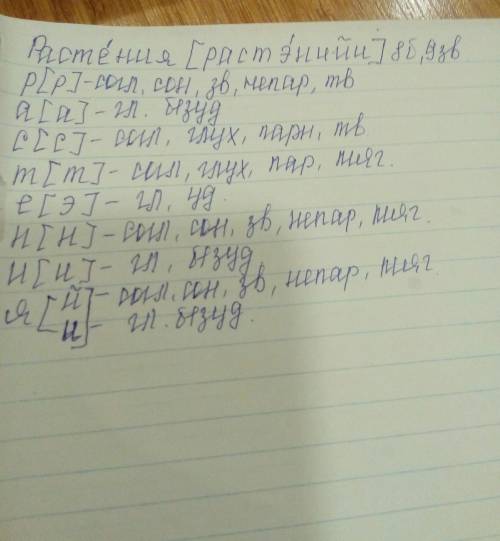 Расте́ния [растэ́нийи] 8б, 9зв
р[р]-согл, сон, зв, непар, тв
а[а]-гл. безуд
с[с]-согл, глух, парн, тв
т[т]-согл, глух, пар, мяг.
е[э]-гл, уд.
н[н]-согл, сон, зв, непар, мяг.
и[и]-гл, безуд
я[й-согл. сон, зв, непар, мяг.
и]-гл. безуд.